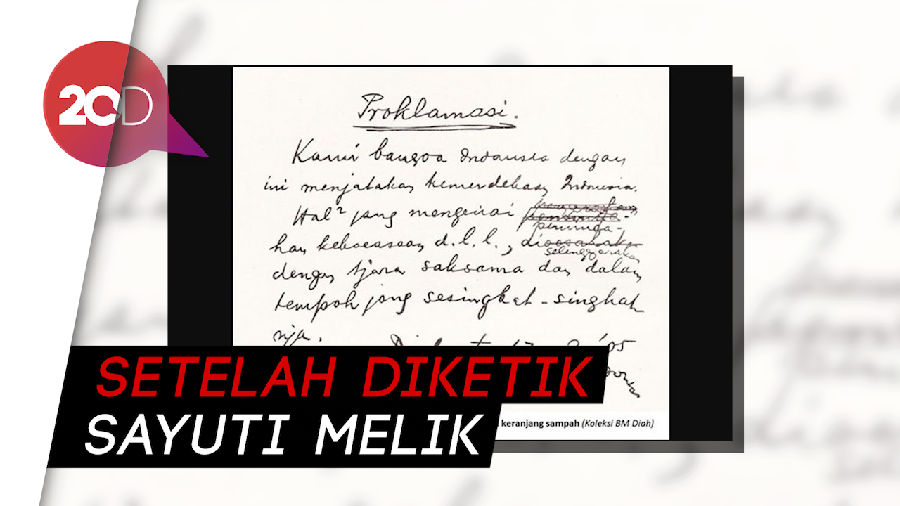 20D
Proklamasi.
Kami bangsa Indonesia dengan
ini menjatakan kemerdekaan Indonesia.
Hal² jang mengenai
peminda-
han kekoeasaan d.l.l.,
diselenggarakan
dengan tjara saksama dan dalam
tempoh jang sesingkat-singkat
nja.
SETELAH DIKETIK
SAYUTI MELIK
keranjang sampah (Koleksi BM Diah)